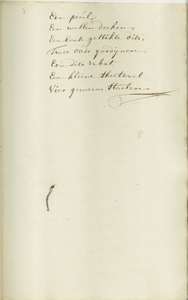 Een peul,
Een wollen deeken,
Een bonte gestikte dito,
Twee oude gordijnen
Een dito rabat
Een kleine
Vier gemeene Stoelen